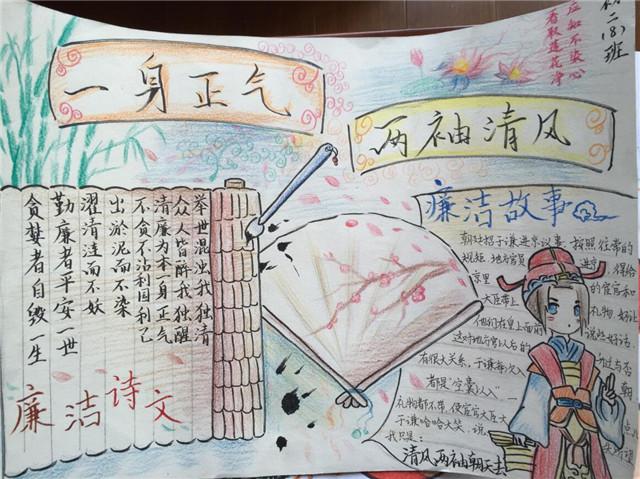 一身正气
两袖清风
看取莲花净
应知不染心
初二(8)班
举世混浊我独清
众人皆醉我独醒
清廉为本一身正气
不贪不沾利国利己
出淤泥而不染
濯清涟而不妖
勤廉者平安一世
贪婪者自毁一生
廉洁诗文
廉洁故事
朝廷招于谦进京议事 按照往常的
规矩 地方官员 进京 得给
京里 的宦官和
大臣带上 礼物 好让
他们在皇上面前 说些好话
这对地方官以后的
有很大关系,于谦每次入 朝
都是“空囊以入”
礼物都不带,使宦官大臣大
于谦哈哈大笑,说
我只是:
清风两袖朝天去